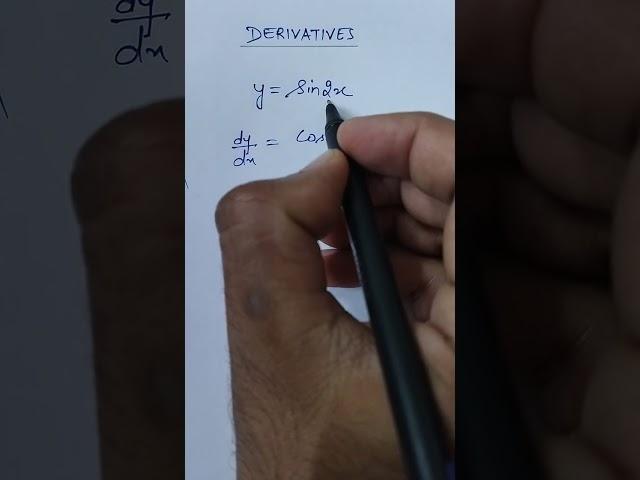 DERIVATIVES
y = sin2x
dy/dx = cos
dy/dx